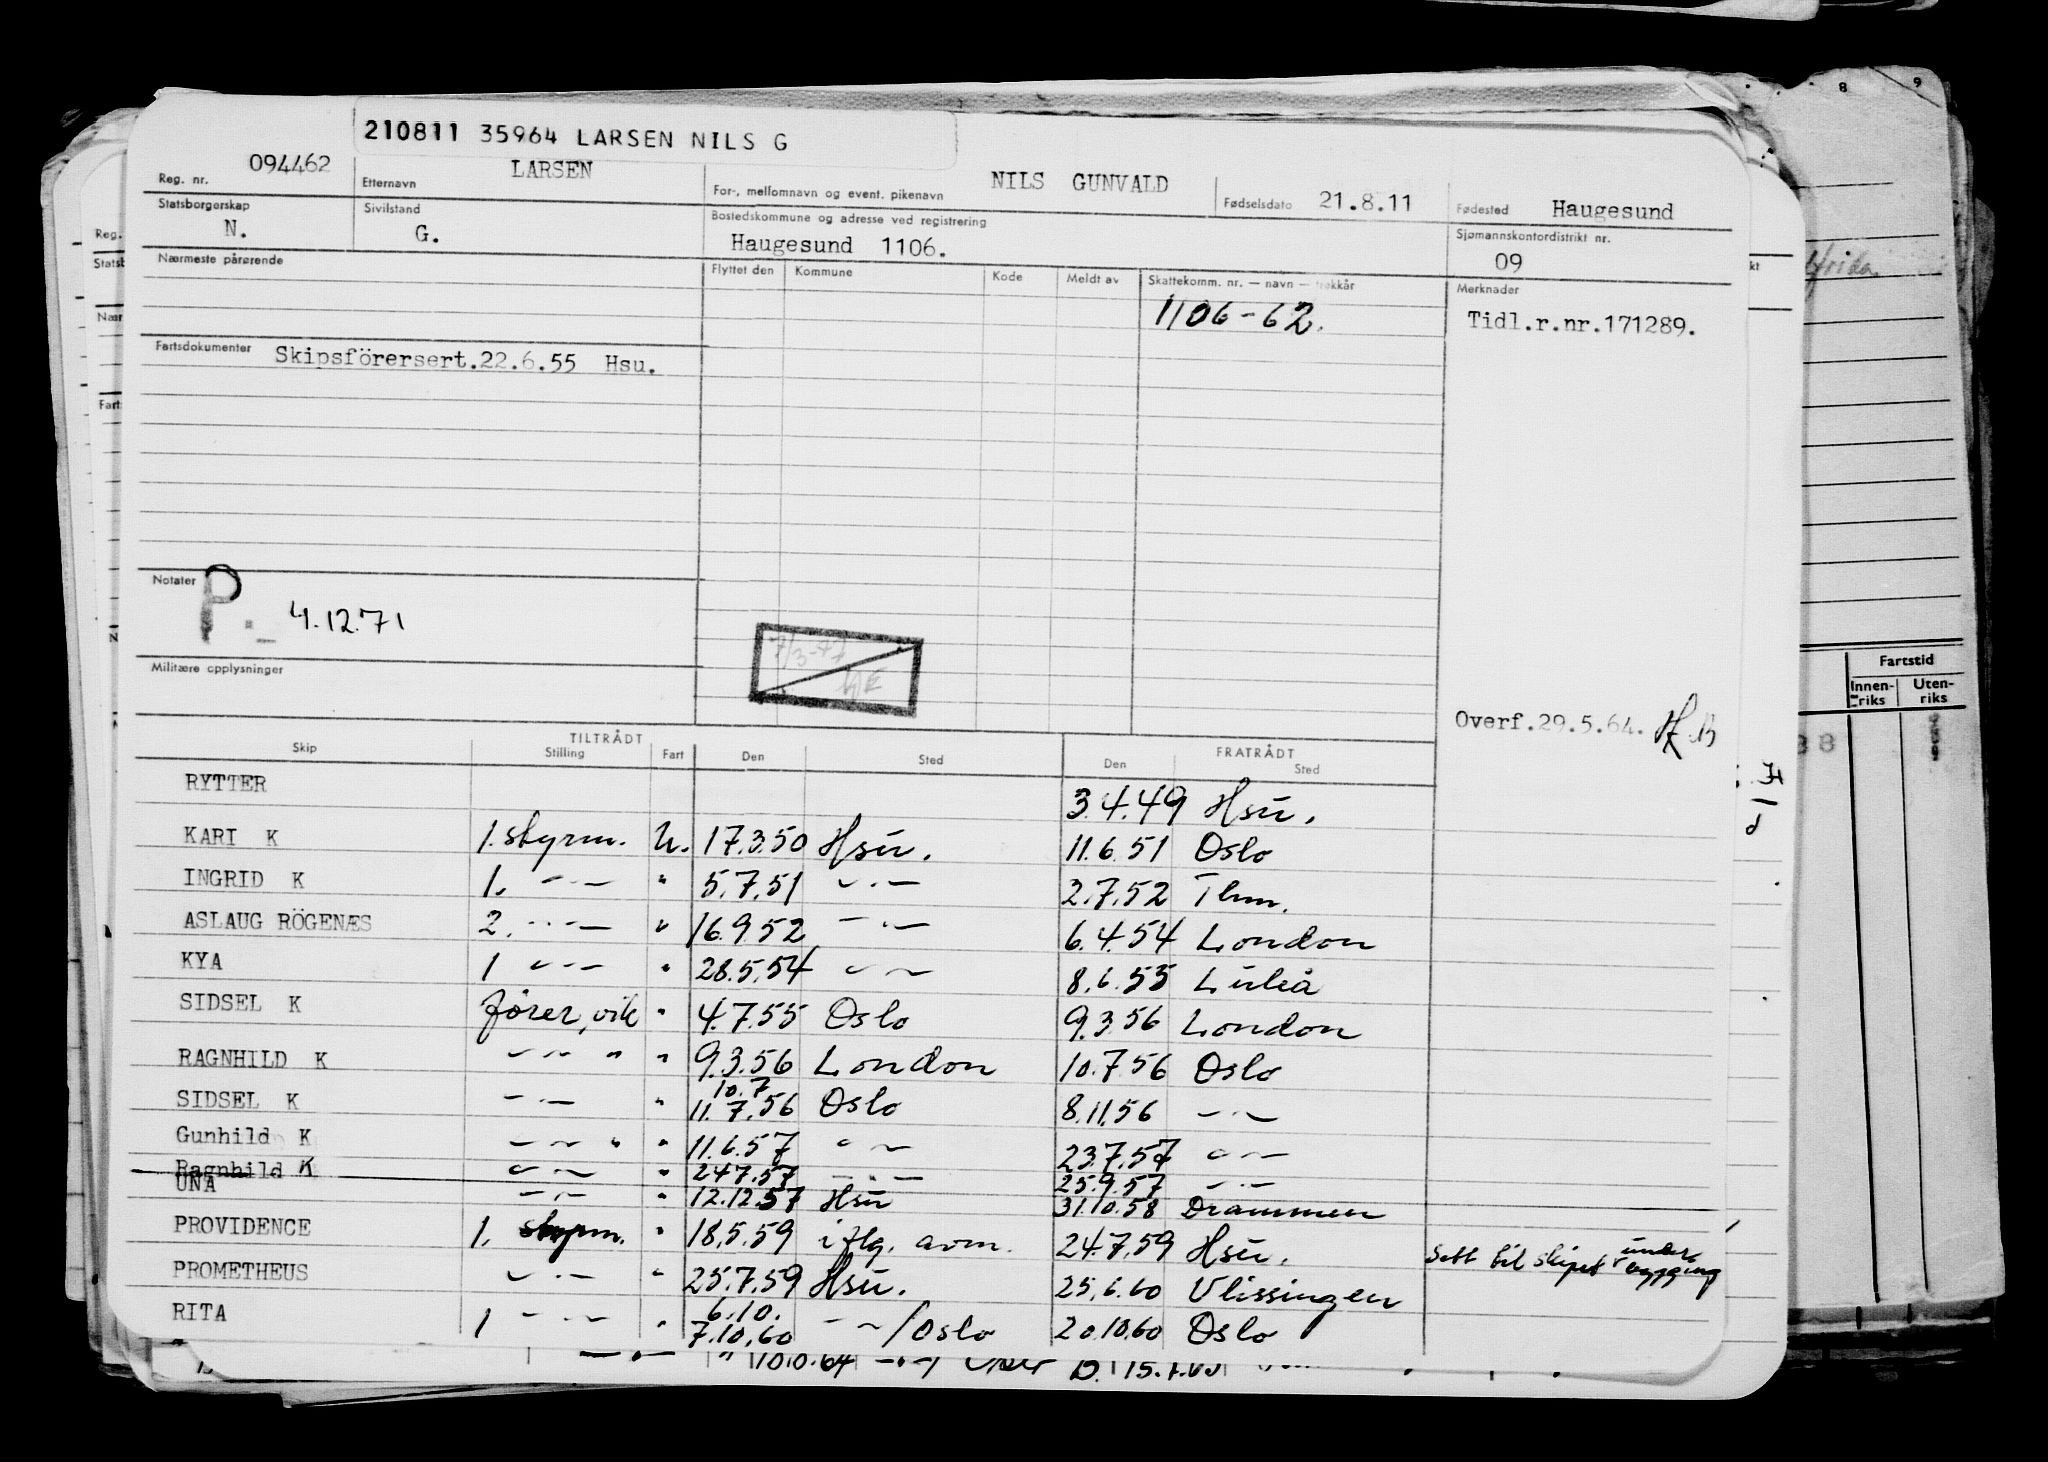 210811 35964 LARSEN NILS G
Reg. nr. 094462 Etternavn LARSEN For-, mellomnavn og event. pikenavn NILS GUNVALD Fødselsdato 21.8.11 Fødested Haugesund
Statsborgerskap N. Sivilstand G. Bostedskommune og adresse ved registrering Haugesund 1106. Sjømannskontordistrikt nr. 09
Nærmeste pårørende Flyttet den Kommune Kode Meldt av Skattekomm. nr. — navn — trekkår Merknader
1106-62. Tidl.r.nr.171289.
Fartsdokumenter Skipsförersert.22.6.55 Hsu.
Notater P. 4.12.71
7/3-77
Militære opplysninger
Overf.29.5.64.
TILTRÅDT FRATRÅDT
Skip Stilling Fart Den Sted Den Sted
RYTTER 3.4.49 Hsu.
KARI K 1. styrm. U. 17.3.50 Hsu. 11.6.51 Oslo
INGRID K 1. —〃— " 5.7.51 —〃— 2.7.52 Thm.
ASLAUG RÖGENÆS 2. —〃— " 16.9.52 —〃— 6.4.54 London
KYA 1 —〃— " 28.5.54 —〃— 8.6.55 Luleå
SIDSEL K fører, vik " 4.7.55 Oslo 9.3.56 London
RAGNHILD K —〃— " " 9.3.56 London 10.7.56 Oslo
SIDSEL K —〃— " 10.7 11.7.56 Oslo 8.11.56 —〃—
Gunhild K —〃— " " 11.6.57 —〃— 23.7.57 —〃—
Ragnhild K —〃— " 24.7.57 —〃— 25.9.57 —〃—
UNA —〃— " 12.12.57 Hsu 31.10.58 Drammen
PROVIDENCE 1. styrm. " 18.5.59 iflg. avm. 24.7.59 Hsu. Sett til skipet under bygging
PROMETHEUS —〃— " 25.7.59 Hsu. 25.6.60 Vlissingen
RITA 1 —〃— " 6.10. 7.10.60 —〃—/Oslo 20.10.60 Oslo
Fartstid
Innen-riks Uten-riks